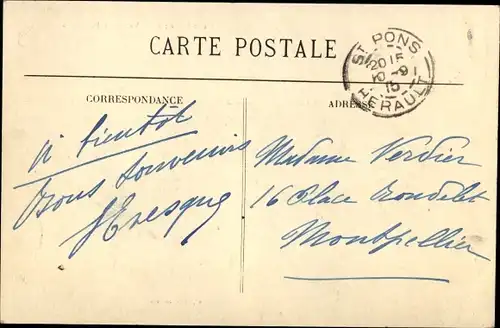 CARTE POSTALE
ST PONS
2015
10-9
15
HERAULT
CORRESPONDANCE
ADRESSE
à bientôt
Bons souvenirs
Madame Verdier
16 Place Rondelet
Montpellier